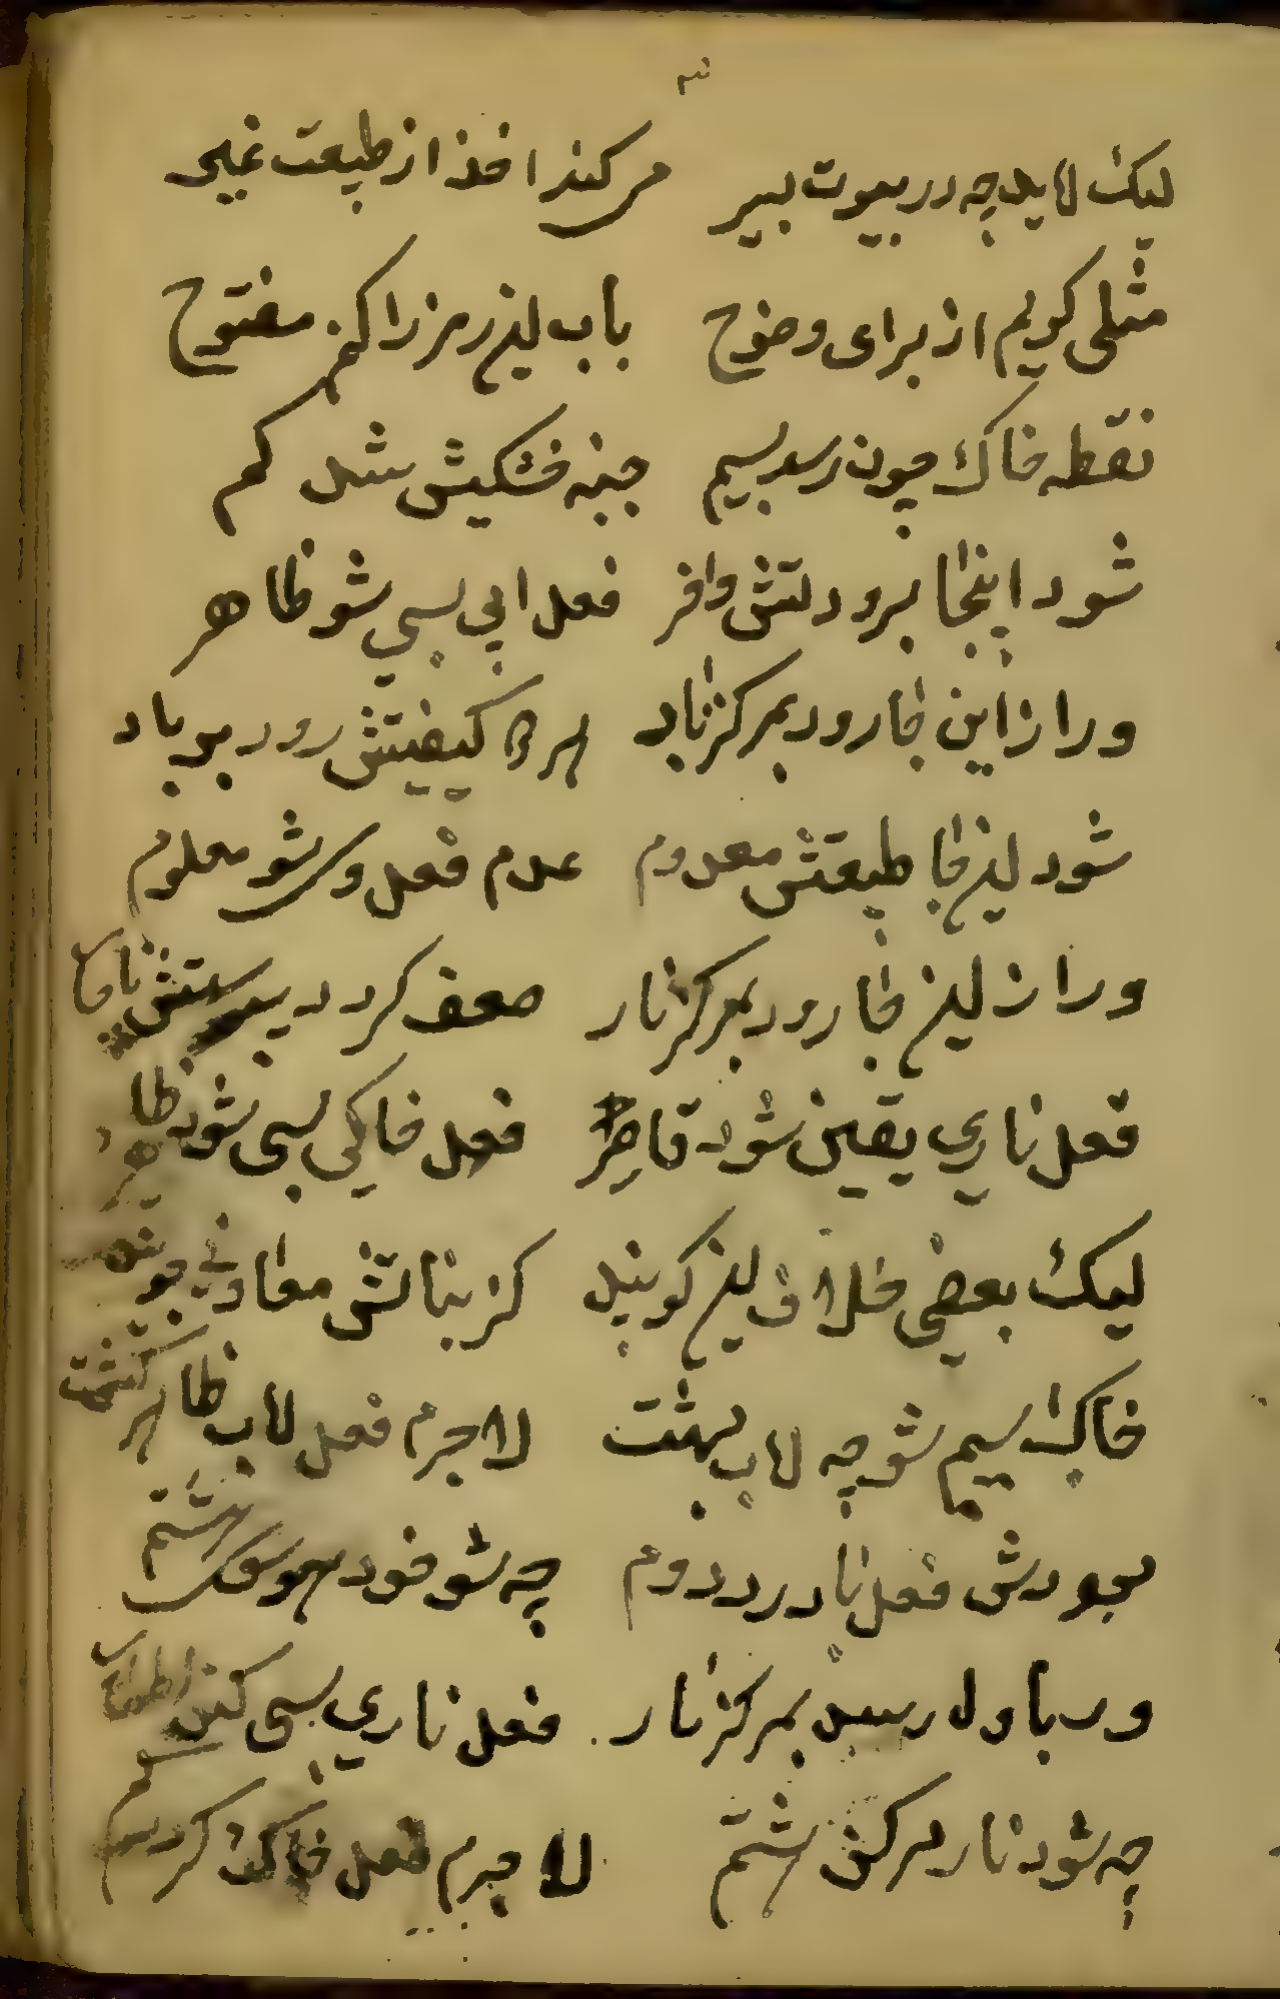 لیک لابد چه در بیوت بسیر میکند اخذ از طبیعت غیر
مثلی کویم از برای وضوح باب این رمز را کنم مفتوح
نقطه خاک چون رسد بسیم جنبه خشکیش شد کم
شود اینجا برودتش وافر فعل ابی بسی شو ظاهر
ور از این جا رود بمرکز باد کیفیتش رود بر باد
شود این جا طبیعتش معدوم عدم فعل وی شو معلوم
ور از این جا رود بمرکز نار ضعف کردد یبوستش ناچار
فعل ناری یقین شود قاصر فعل خاکی بسی شود ظاهر
لیک بعضی خلاف این کویند کز بناتش معاونی جویند
خاک سیم شو چه لاب بهشت لاجرم فعل لاب ظاهر کشت
بیودش فعل نادر در دوم چه شو خود
ور باول رسد بمرکز نار فعل ناری بسی کند اظهار
چه شود نار مرکز ششم لاجرم فعل خاک کردد کم